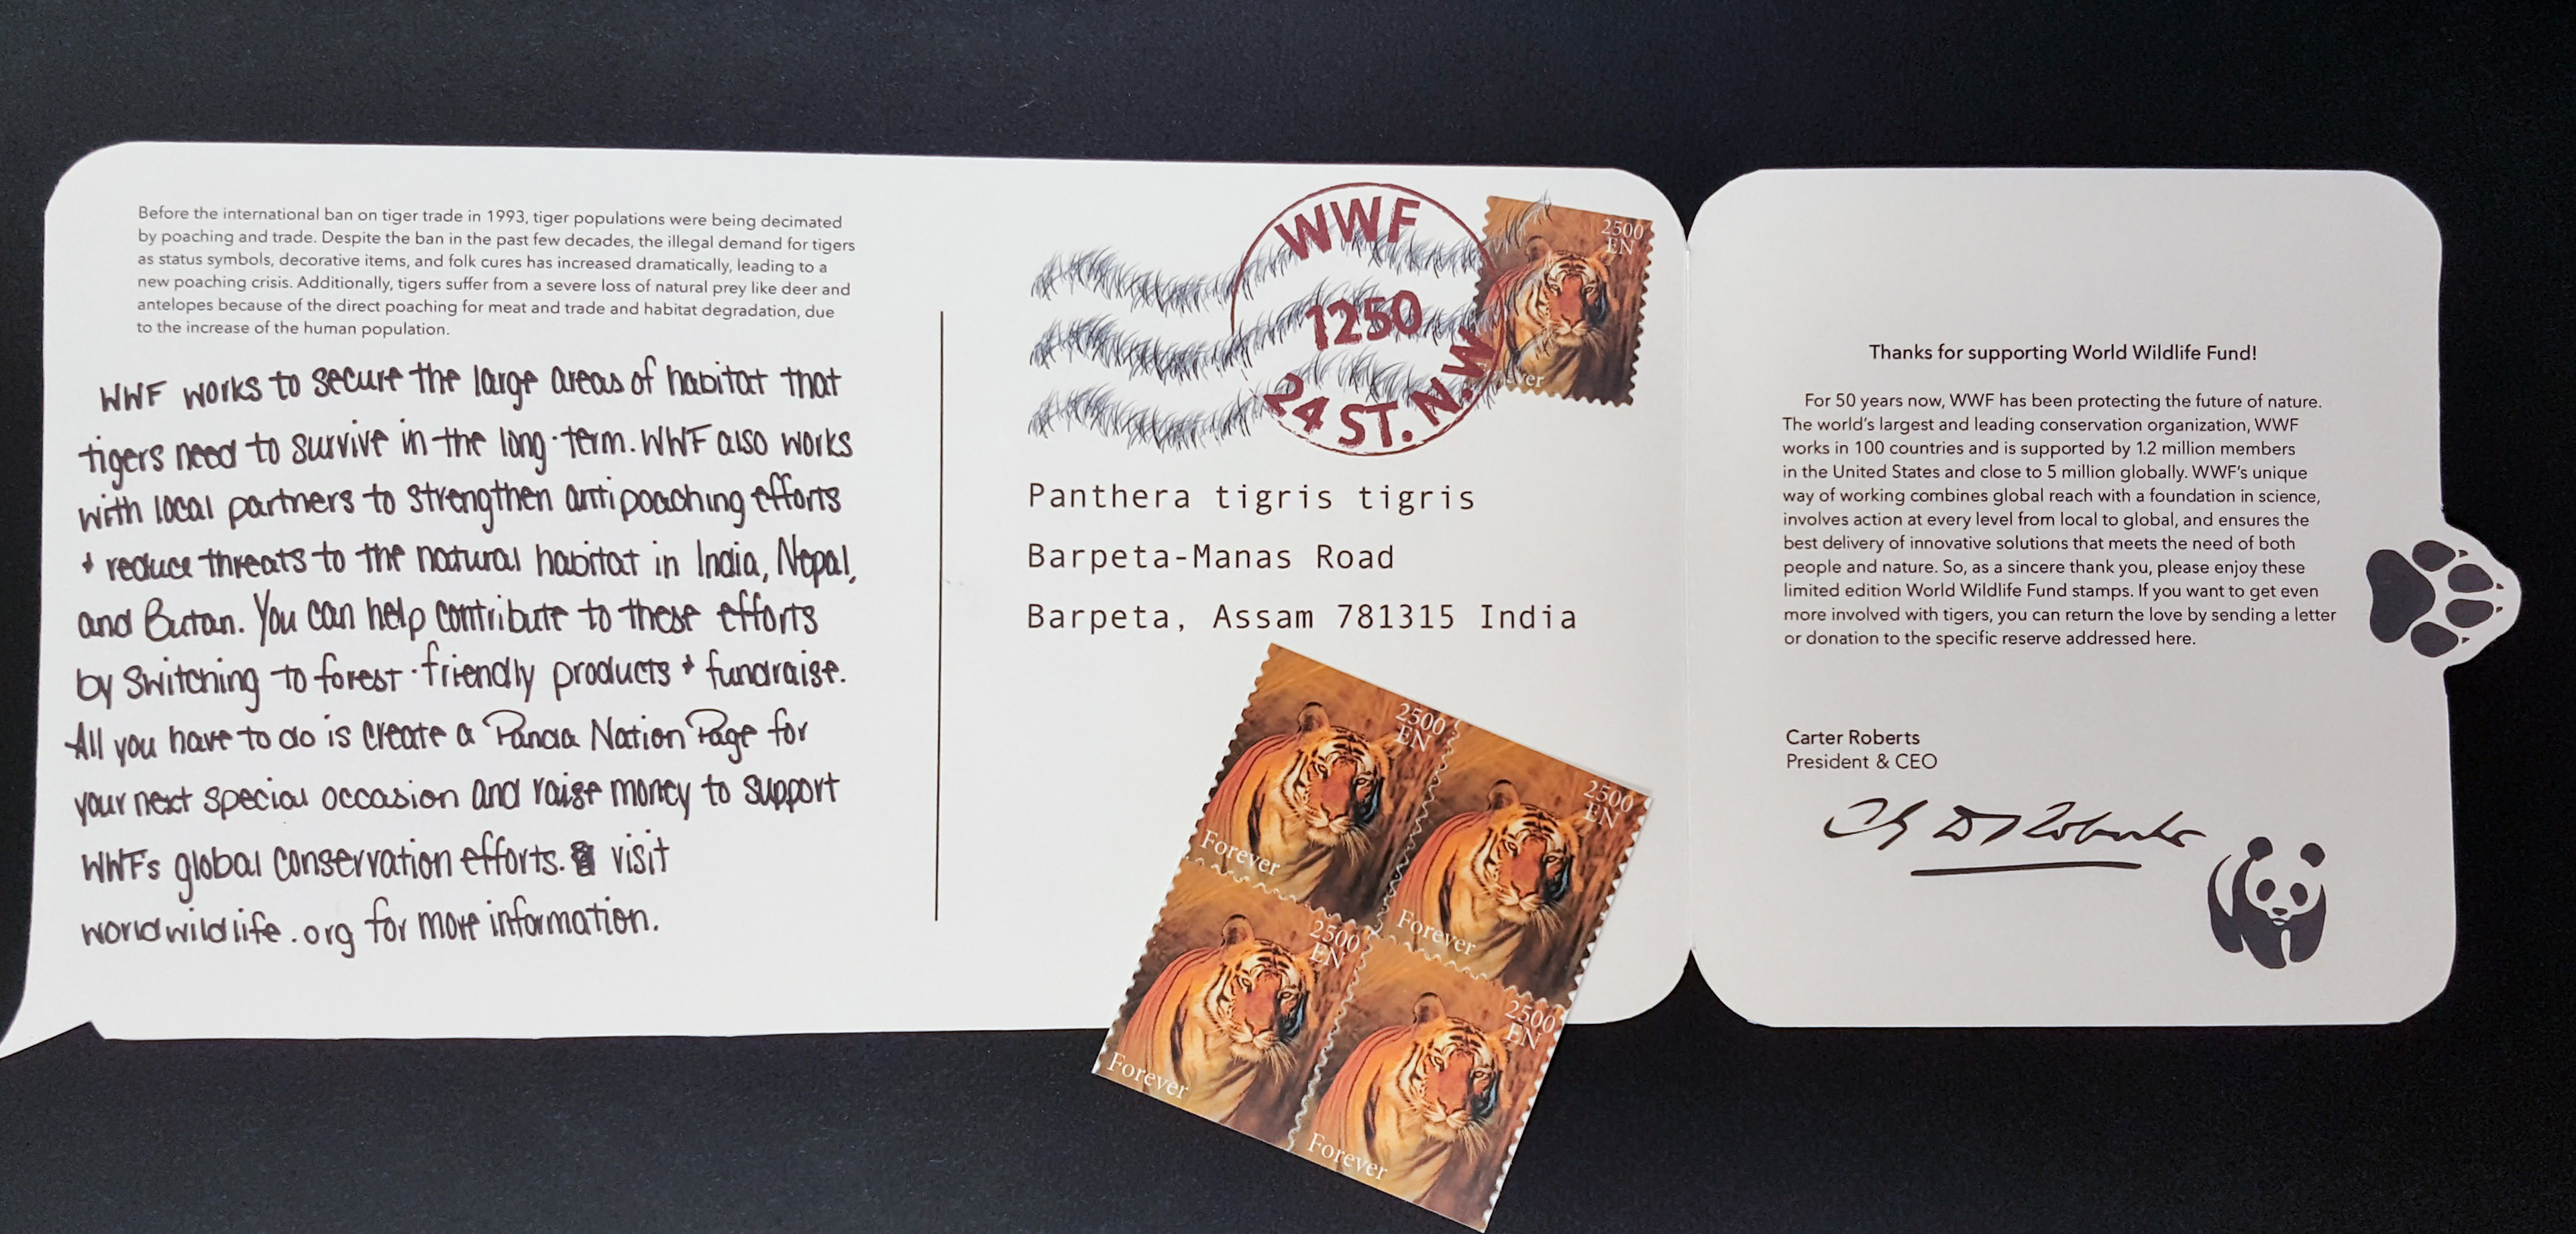 Before the international ban on tiger trade in 1993, tiger populations were being decimated
by poaching and trade. Despite the ban in the past few decades, the illegal demand for tigers
as status symbols, decorative items, and folk cures has increased dramatically, leading to a
new poaching crisis. Additionally, tigers suffer from a severe loss of natural prey like deer and
antelopes because of the direct poaching for meat and trade and habitat degradation, due
to the increase of the human population.
WWF works to secure the large areas of habitat that
tigers need to survive in the long-term. WWF also works
with local partners to strengthen antipoaching efforts
+ reduce threats to the natural habitat in India, Nepal,
and Butan. You can help contribute to these efforts
by Switching to forest-friendly products + fundraise.
All you have to do is create a Panda Nation Page for
your next special occasion and raise money to support
WWFs global conservation efforts. visit
worldwildlife.org for more information.
WWF
1250
24 ST. N.W
2500
EN
ver
Panthera tigris tigris
Barpeta-Manas Road
Barpeta, Assam 781315 India
2500
EN
Forever
2500
EN
Forever
2500
EN
Forever
2500
EN
Forever
Thanks for supporting World Wildlife Fund!
For 50 years now, WWF has been protecting the future of nature.
The world's largest and leading conservation organization, WWF
works in 100 countries and is supported by 1.2 million members
in the United States and close to 5 million globally. WWF's unique
way of working combines global reach with a foundation in science,
involves action at every level from local to global, and ensures the
best delivery of innovative solutions that meets the need of both
people and nature. So, as a sincere thank you, please enjoy these
limited edition World Wildlife Fund stamps. If you want to get even
more involved with tigers, you can return the love by sending a letter
or donation to the specific reserve addressed here.
Carter Roberts
President & CEO